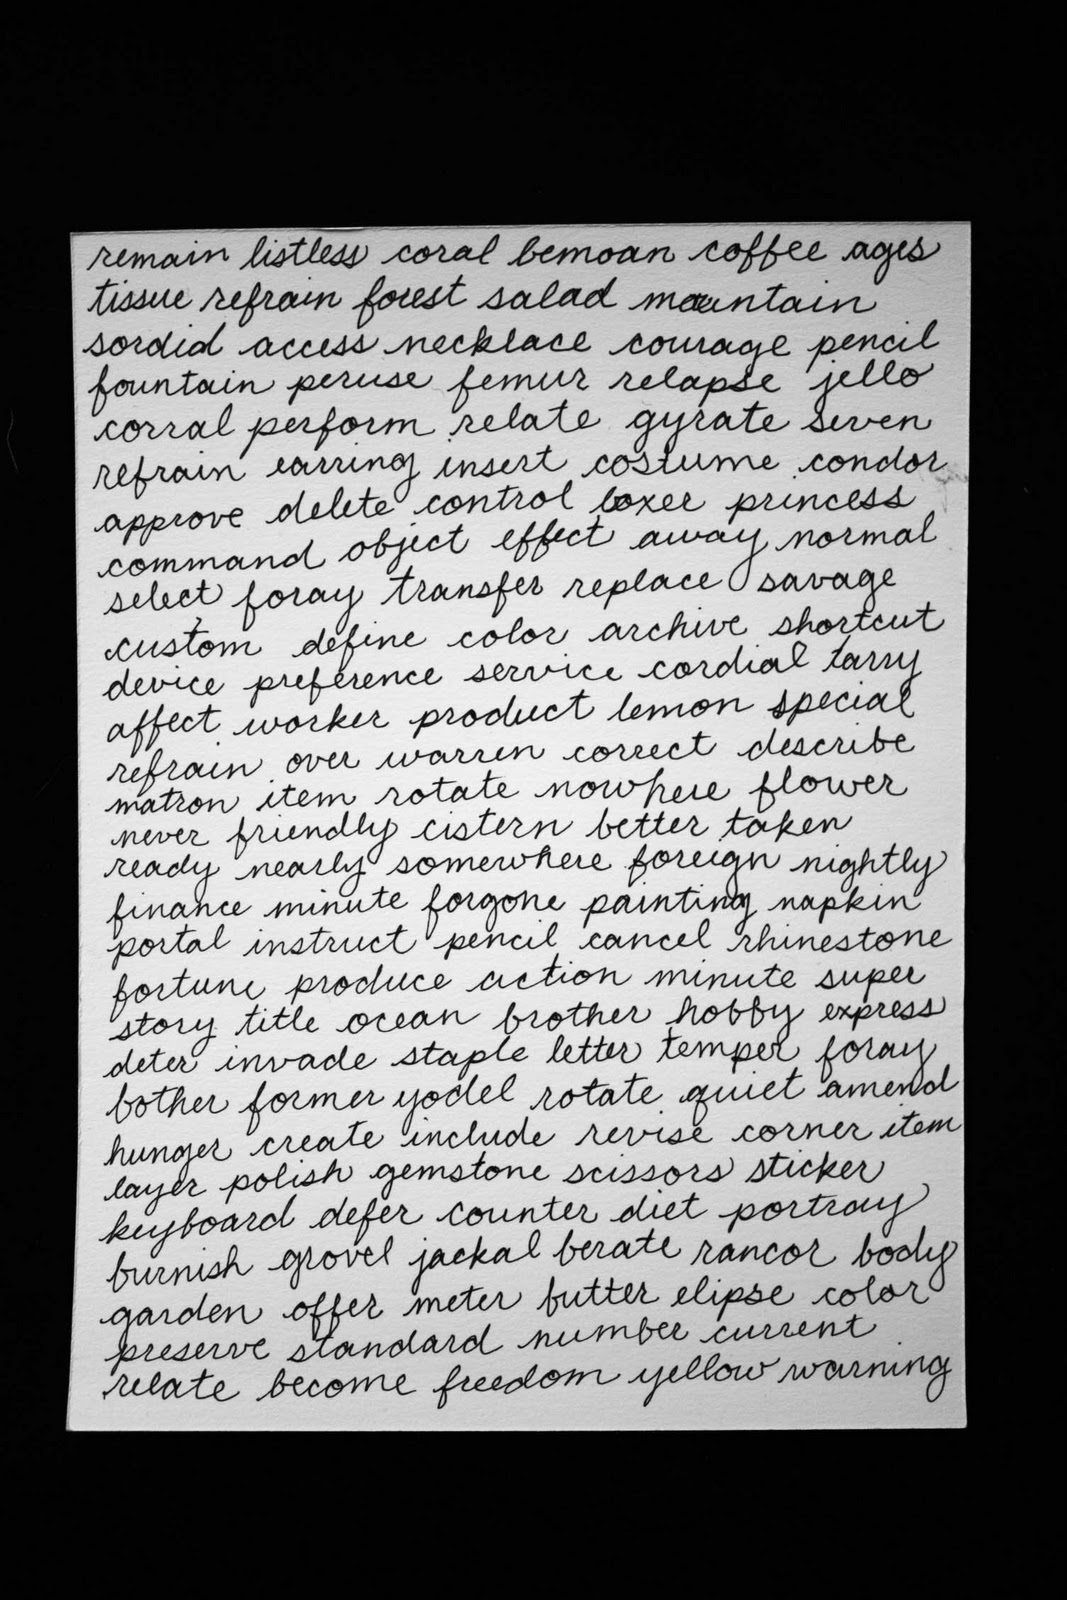 remain listless coral bemoan coffee ages
tissue refrain forest salad mountain
sordid access necklace courage pencil
fountain peruse femur relapse jello
corral perform relate gyrate seven
refrain earring insert costume condor
approve delete control boxer princess
command object effect away normal
select foray transfer replace savage
custom define color archive shortcut
device preference service cordial tarry
affect worker product lemon special
refrain over warren correct describe
matron item rotate nowhere flower
never friendly cistern better taken
ready nearly somewhere foreign nightly
finance minute forgone painting napkin
portal instruct pencil cancel rhinestone
fortune produce action minute super
story title ocean brother hobby express
deter invade staple letter temper foray
bother former yodel rotate quiet amend
hunger create include revise corner item
layer polish gemstone scissors sticker
keyboard defer counter diet portray
burnish grovel jackal berate rancor body
garden offer meter butter elipse color
preserve standard number current
relate become freedom yellow warning